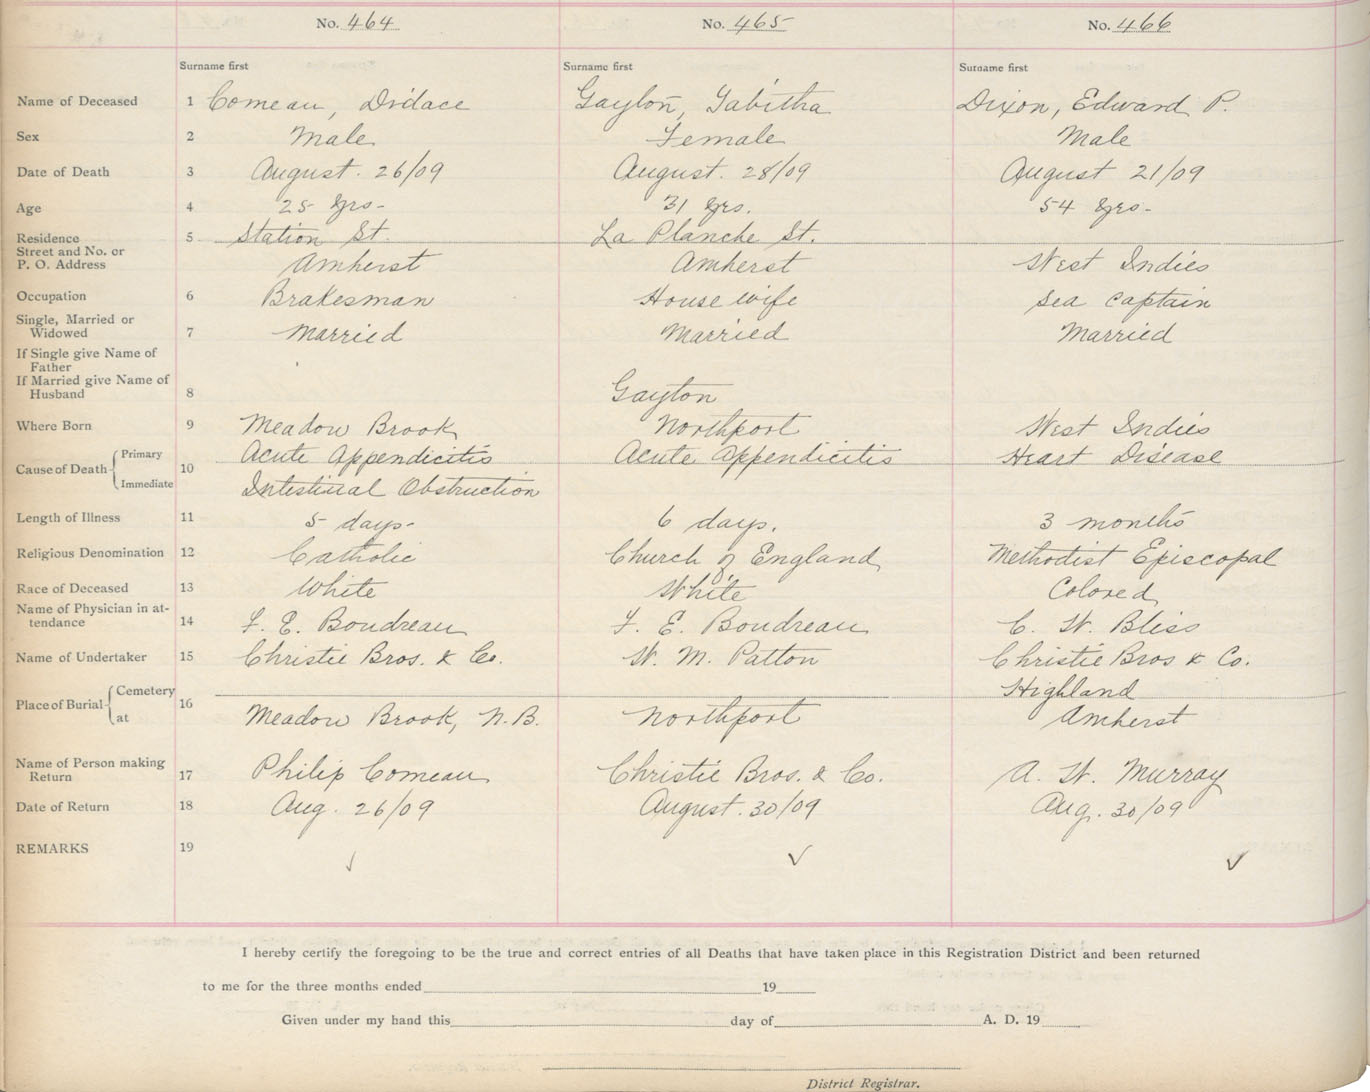 No. 464 No. 465 No. 466
Surname first Surname first Surname first
Name of Deceased 1 Comeau, Didace Gayton, Tabitha Dixon, Edward P.
Sex 2 Male Female Male
Date of Death 3 August. 26/09 August. 28/09 August 21/09
Age 4 25 yrs- 31 yrs. 54 yrs-
Residence 5 Station St. La Planche St.
Street and No. or
P. O. Address Amherst Amherst West Indies
Occupation 6 Brakesman House wife Sea Captain
Single, Married or
Widowed 7 Married Married Married
If Single give Name of
Father
If Married give Name of
Husband 8 Gayton
Where Born 9 Meadow Brook Northport West Indies
Cause of Death 10 Primary Acute Appendicitis Acute Appendicitis Heart Disease
Immediate Intestinal Obstruction
Length of Illness 11 5 days- 6 days. 3 months
Religious Denomination 12 Catholic Church of England Methodist Episcopal
Race of Deceased 13 White White Colored
Name of Physician in at-
tendance 14 F. E. Boudreau F. E. Boudreau C. W. Bliss
Name of Undertaker 15 Christie Bros. & Co. W. M. Patton Christie Bros & Co.
Place of Burial 16 Cemetery Highland
at Meadow Brook, N.B. Northport Amherst
Name of Person making
Return 17 Philip Comeau Christie Bros. & Co. A. W. Murray
Date of Return 18 Aug. 26/09 August. 30/09 Aug. 30/09
REMARKS 19 ✓ ✓ ✓
I hereby certify the foregoing to be the true and correct entries of all Deaths that have taken place in this Registration District and been returned
to me for the three months ended 19
Given under my hand this day of A. D. 19
District Registrar.